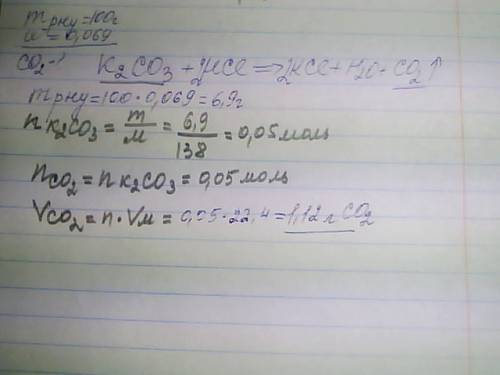 m р-ну=100г
w = 0,069
CO₂-? K₂CO₃ + 2HCl => 2KCl + H₂O + CO₂↑
m р-ну=100·0,069=6,9г
n K₂CO₃ = m/M = 6,9/138 = 0,05моль
n CO₂ = n K₂CO₃ = 0,05моль
V CO₂ = n · Vм = 0,05·22,4 = 1,12 л CO₂